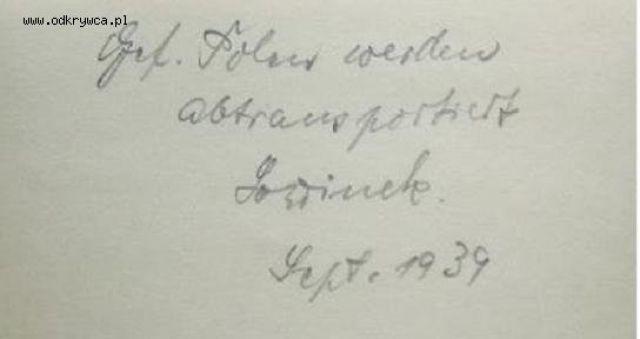 www.odkrywca.pl
Gef. Polen werden
abtransportiert
Sept. 1939